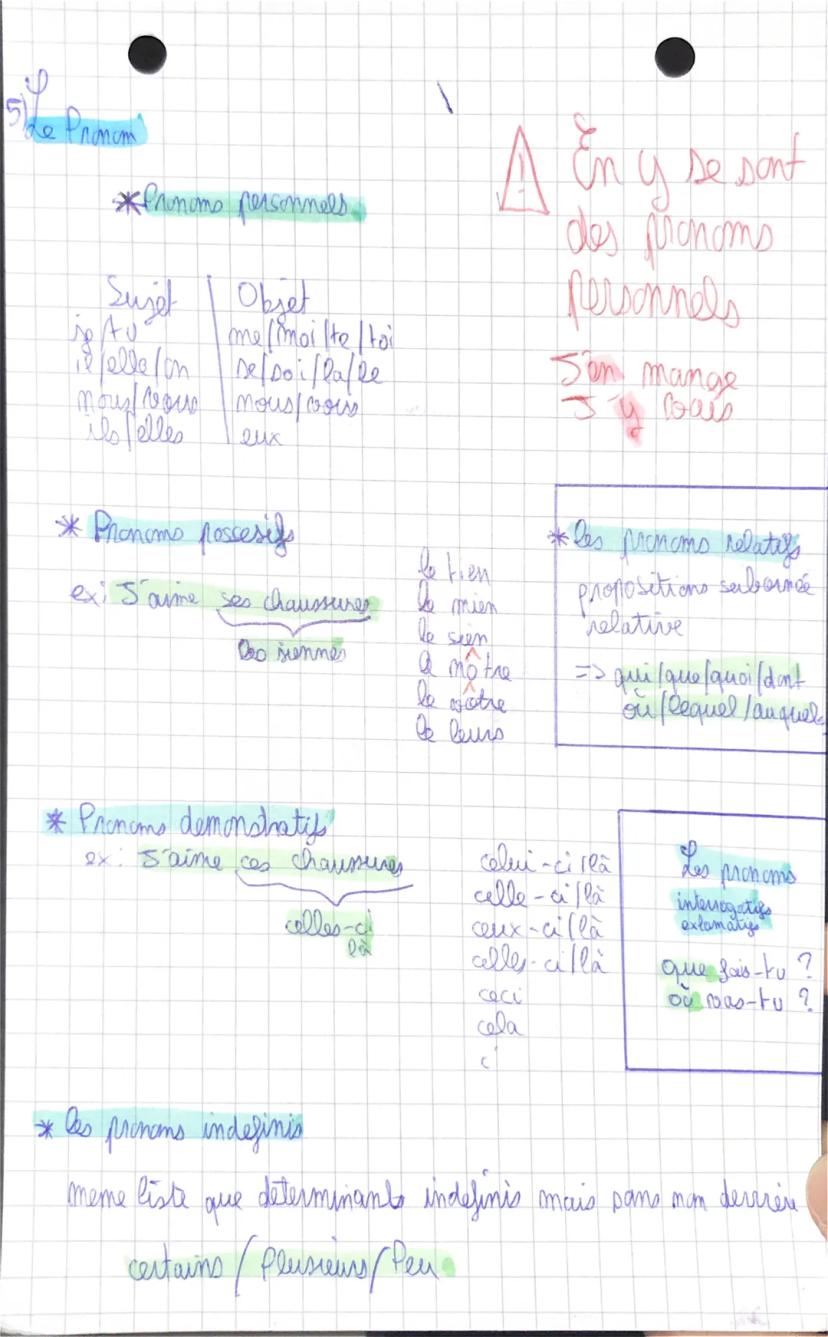 5) Le Pronom
* Pronoms personnels
⚠ En y se sont
des pronoms
personnels
J'en mange
J'y vais
Sujet | Objet
je/tu | me/moi/te/toi
il/elle/on | se/soi/la/le
nous/vous | nous/vous
ils/elles | eux
* Pronoms possesifs
ex: J'aime ses chaussures
les siennes
le tien
le mien
le sien
le nôtre
le vôtre
le leurs
* les pronoms relatifs
propositions subornée
relative
=> qui/que/quoi/dont
où/lequel/auquel
* Pronoms demonstratifs
ex: J'aime ces chaussures
celles-ci
là
celui-ci/là
celle-ci/là
ceux-ci/là
celles-ci/là
ceci
cela
c'
Les pronoms
interrogatifs
exlamatifs
que fais-tu ?
où vas-tu ?
* les pronoms indefinis
meme liste que determinants indefinis mais sans nom derrière
certains / Plusieurs / Peu